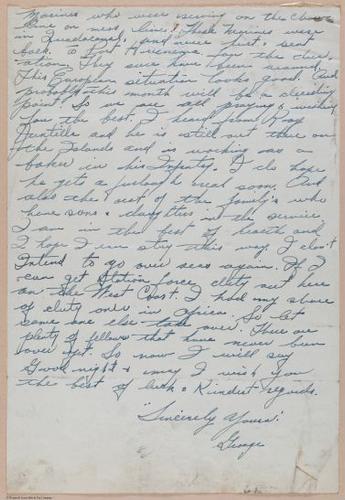 Marines who were serving on the
line. These Marines were
in Guadalcanal, and never
back to Port Hueneme for this
ation. They sure have been
This European situation looks good. And
probably this month will be a deciding
point. So we are all praying & wishing
for the best. I heard from Ray
and he is still out there on
the Islands and is working as a
baker in his Infantry. I do hope
he gets a furlough soon. And
also the rest of the family's who
have sons & daughters in the service.
I am in the best of health and
I hope I can stay this way. I don't
Intend to go over seas again. If I
can get Station force duty out here
on the West Coast. I had my share
of duty only in Africa. So let
some one else take over. There are
plenty of fellows that have never been
over yet. So now I will say
Good night & may I wish you
the best of luck & Kindest regards.
"Sincerely Yours"
George